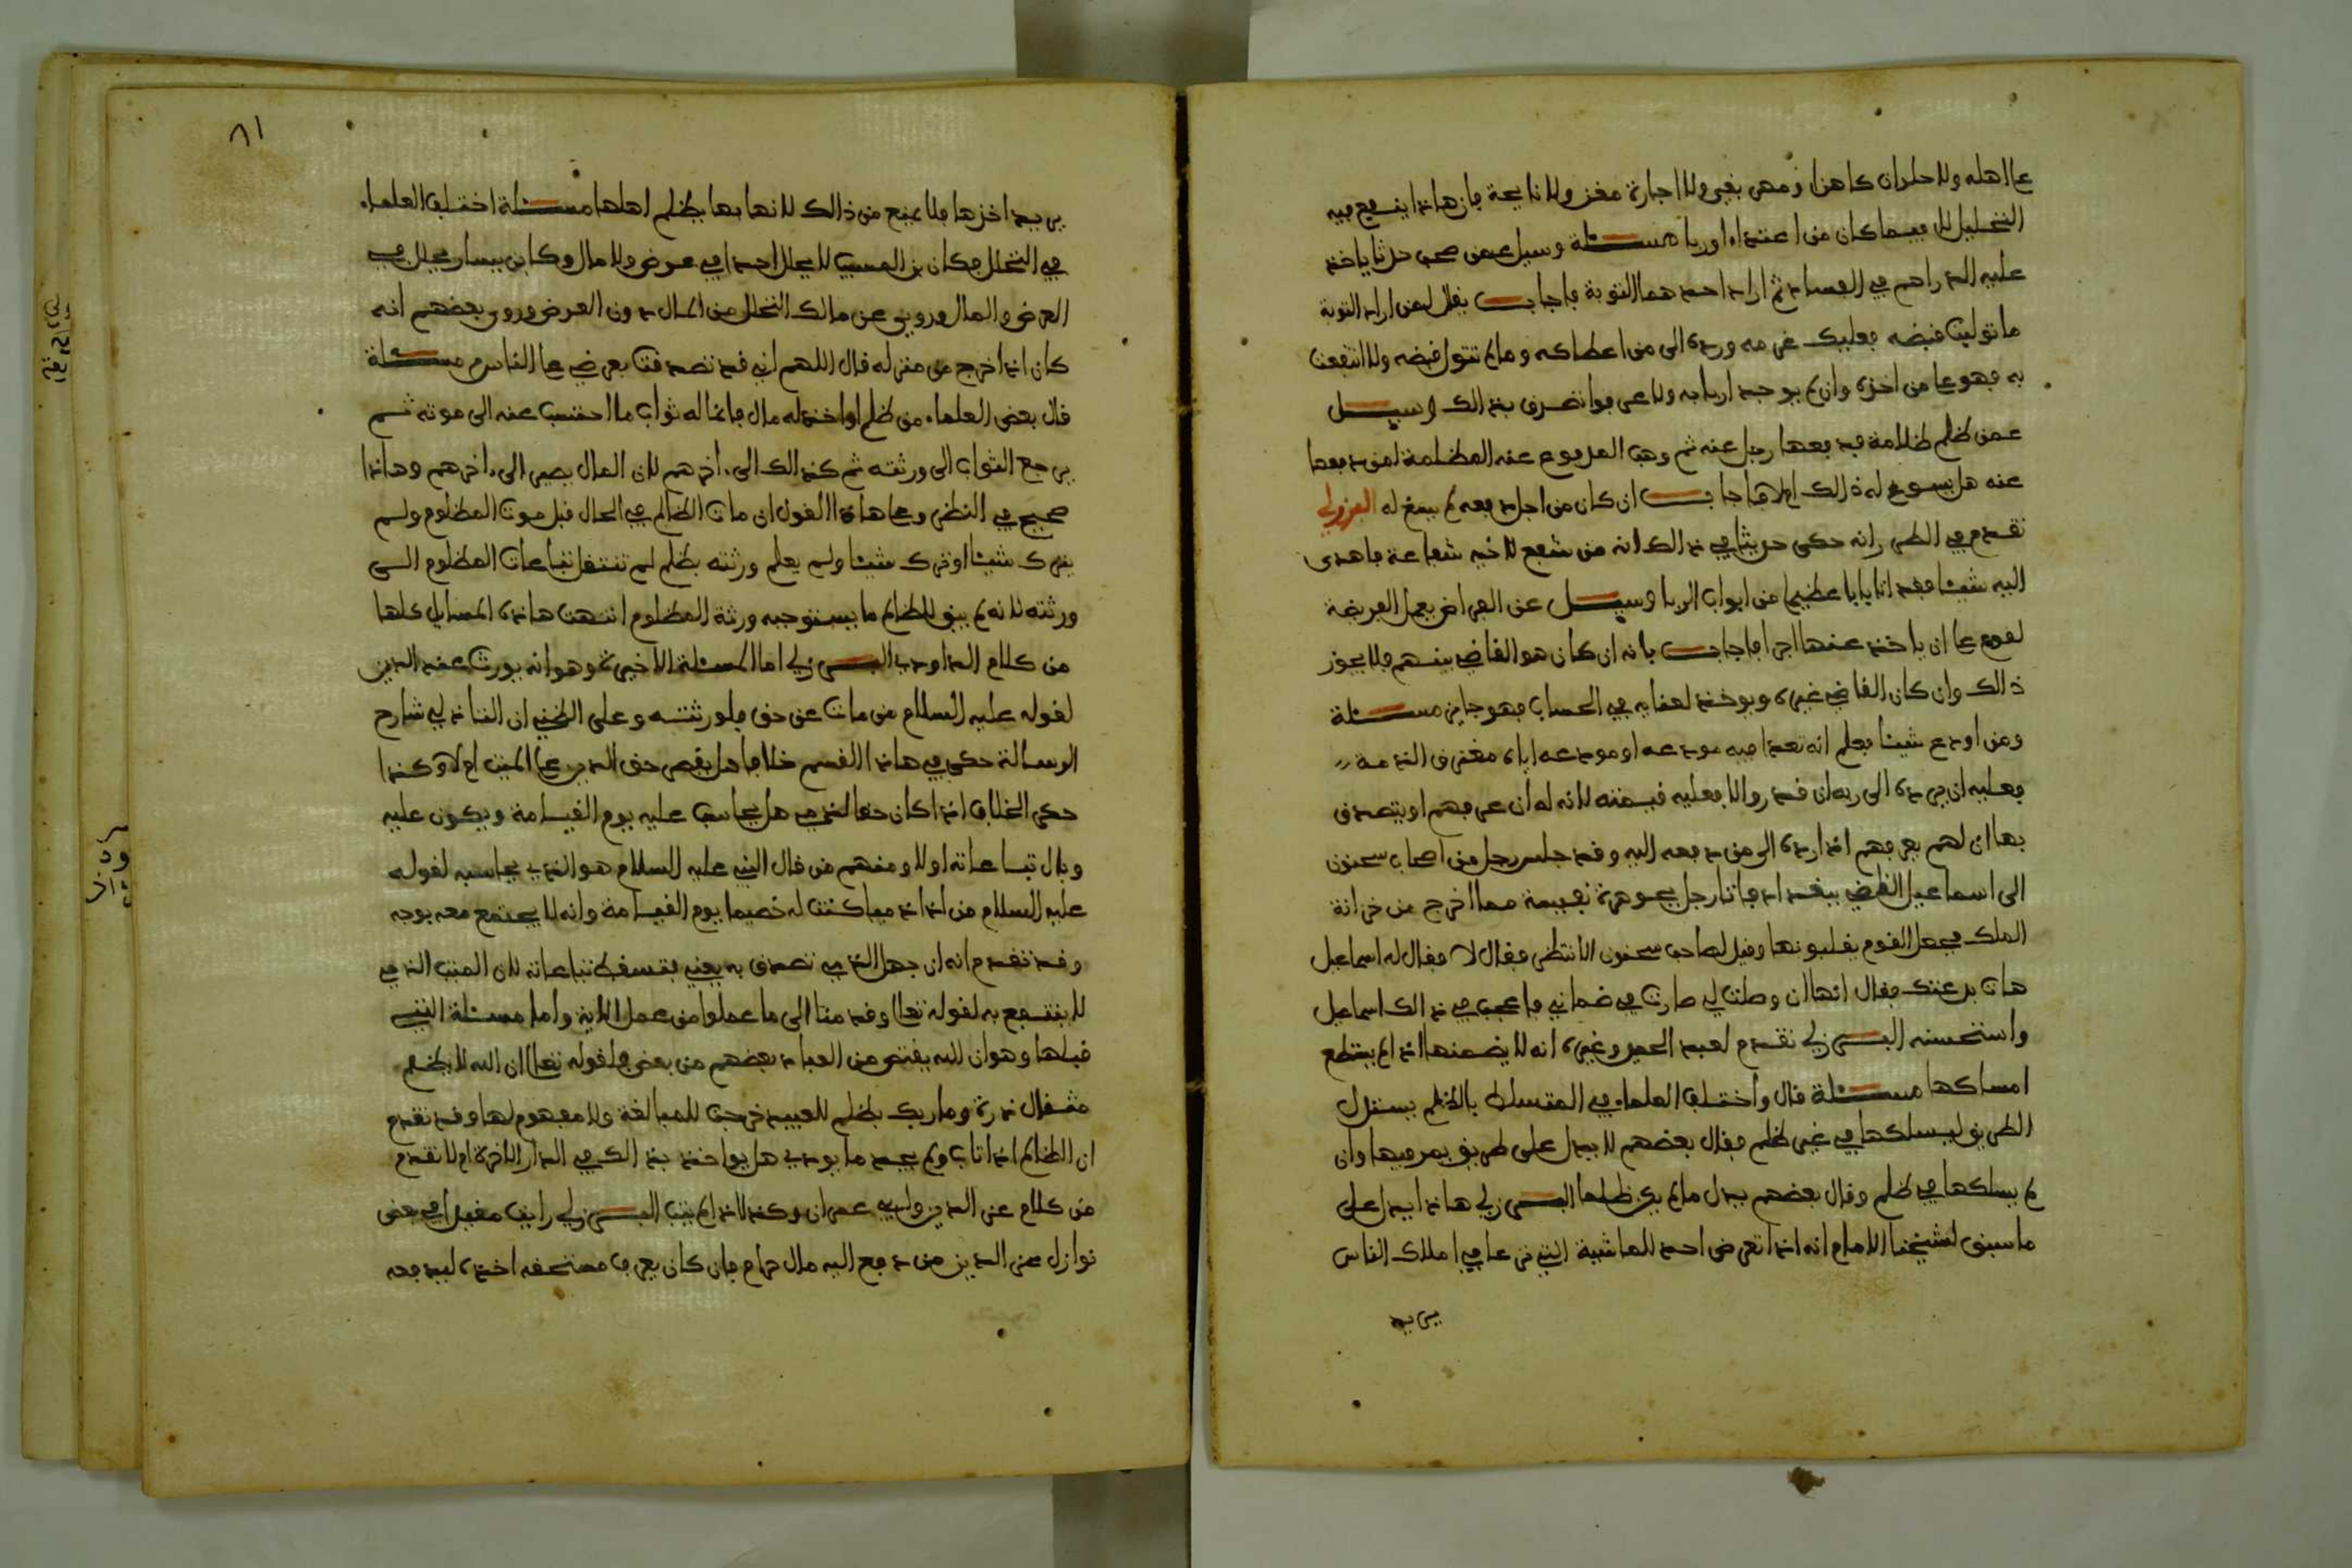 على اهله ولا حلوان كاهن او مهر بغي ولا اجارة مغن ولا نايحة فان هاذا ينفع فيه
التحليل لا فيما كان من اعتداء او ربا مسئلة وسيل عمن صرف حديثا ياخذ
عليه الدراهم في الفساد ثم اراد احدهما التوبة فاجاب يقال لمن اراد التوبة
ما توليت قبضه فعليك غرمه ورده الى من اعطاكه وما لم تتول قبضه ولا انتفعت
به فهو على من اخذه وان لم يوجد اربابه ولا عرفوا تصدق بذالك وسيل
عمن ظلم ظلامة فدفعها رجل عنه ثم وهب المدفوع عنه المظلمة لمن دفعها
عنه هل يسوغ له ذالك ام لا فاجاب ان كان من اجل دفعه لم ينبغ له البرزلي
تقدم في الطرر انه حكى حديثا في ذالك انه من شفع لاخيه شفاعة فاهدى
اليه شيئا فقد اتا بابا عظيما من ابواب الربا وسيل عن الفراض يعمل الفريضة
لقوم على ان ياخذ عنها اجرا فاجاب بانه ان كان هو القاضي بينهم فلا يجوز
ذالك وان كان القاضي غيره ويوخذ لعنايه في الحساب فهو جايز مسئلة
ومن اودع شيئا يعلم انه تعدا فيه مودعه او مودعه اياه مغترق الذمة
فعليه ان يرده الى ربه ان قدر والا فعليه قيمته لانه له ان عرفهم او يتصدق
بها ان لم يعرفهم اذا رده الى من دفعه اليه وقد جلس رجل من اصحاب سحنون
الى اسماعيل القاضي ببغداد فاتا رجل بجوهرة نفيسة مما اخرج من خزانة
الملك فجعل القوم يقلبونها وقيل لصاحب سحنون الا تنظر فقال لا فقال له اسماعيل
هات يدعتك فقال انها ان وصلت لي صارت في ضماني فاعجب من ذالك اسماعيل
واستحسنه البرزلي تقدم لعبد الحميد وغيره انه لا يضمنها اذا لم يستطع
امساكها مسئلة قال واختلف العلماء في المتسلط بالظلم يستدل
الطريق ليسلكها في غير ظلم فقال بعضهم لا يدل على طريق يمر فيها وان
لم يسلكها في ظلم وقال بعضهم يدل ما لم يكن ظلما البرزلي هاذا يدل على
ما سبق لشيخنا الامام انه اذا تعرض احد للماشية التي ترعى في املاك الناس
يريد
٨١
يريد اخذها فلا يمنع من ذالك لانها بها يظلم اهلها مسئلة اختلف العلماء
في التحلل فكان بن المسيب لا يحلل احدا في عرض ولا مال وكان بن يسار يحلل من
العرض والمال وروي عن مالك التحلل من المال دون العرض وروي بعضهم انه
كان اذا خرج من منزله قال اللهم اني قد تصدقت بعرضي على الناس مسئلة
قال بعض العلماء من ظلم او اخذ له مال فانما له ثواب ما احتسب عنه الى موته ثم
يرجع الثواب الى ورثته ثم كذالك الى اخرهم لان المال يصير الى اخرهم وهاذا
صحيح في النظر وعلى هاذا القول ان مات الظالم في الحال قبل موت المظلوم ولم
يترك شيئا او ترك شيئا ولم يعلم ورثته بظلم لم تنتقل تباعات المظلوم الى
ورثته لانه لم يبق للظالم ما يستوجبه ورثة المظلوم انتهت هاذه المسايل كلها
من كلام الداودي البرزلي اما المسئلة الاخيرة وهو انه يورث عنه الدين
لقوله عليه السلام من مات عن حق فلورثته وعلى الظني ان التاذلي شارح
الرسالة حكى في هاذا القسم خلافا هل يقبض حق الدين على الميت ام لا وكذا
حكى الخلاف اذا كان حقا لذمي هل يحاسب عليه يوم القيامة ويكون عليه
وبال تباعاته او لا ومنهم من قال النبي عليه السلام هو الذي يحاسبه لقوله
عليه السلام من اذا ذميا كنت له خصيما يوم القيامة وانه لا يجتمع معه بوجه
وقد تقدم انه ان جهل الذمي تصدق به يعني يقسط تباعاته لان الميت الذمي
لا ينتفع به لقوله تعالى وقدمنا الى ما عملوا من عمل الاية واما مسئلة التي
قبلها وهو ان الله يقتص من العباد بعضهم من بعض فلقوله تعالى ان الله لا يظلم
مثقال ذرة وما ربك بظلم للعبيد خرجت للمبالغة ولا مفهوم لها وقد تقدم
ان الظالم اذا تاب ولم يجد ما يودي هل يواخذ بذالك في الدار الاخرة ام لا تقدم
من كلام عز الدين ولابي عمران وكذا اذا لم يتب البرزلي رايت مقيدا في بعض
نوازل عز الدين من دفع اليه مال حرام فان كان يعرف مستحقه اخذه ليدفعه